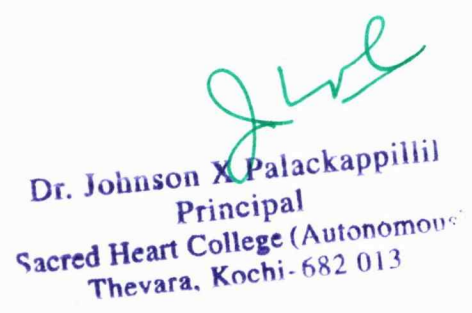 Dr. Johnson X Palackappillil
Principal
Sacred Heart College (Autonomous
Thevara, Kochi-682 013